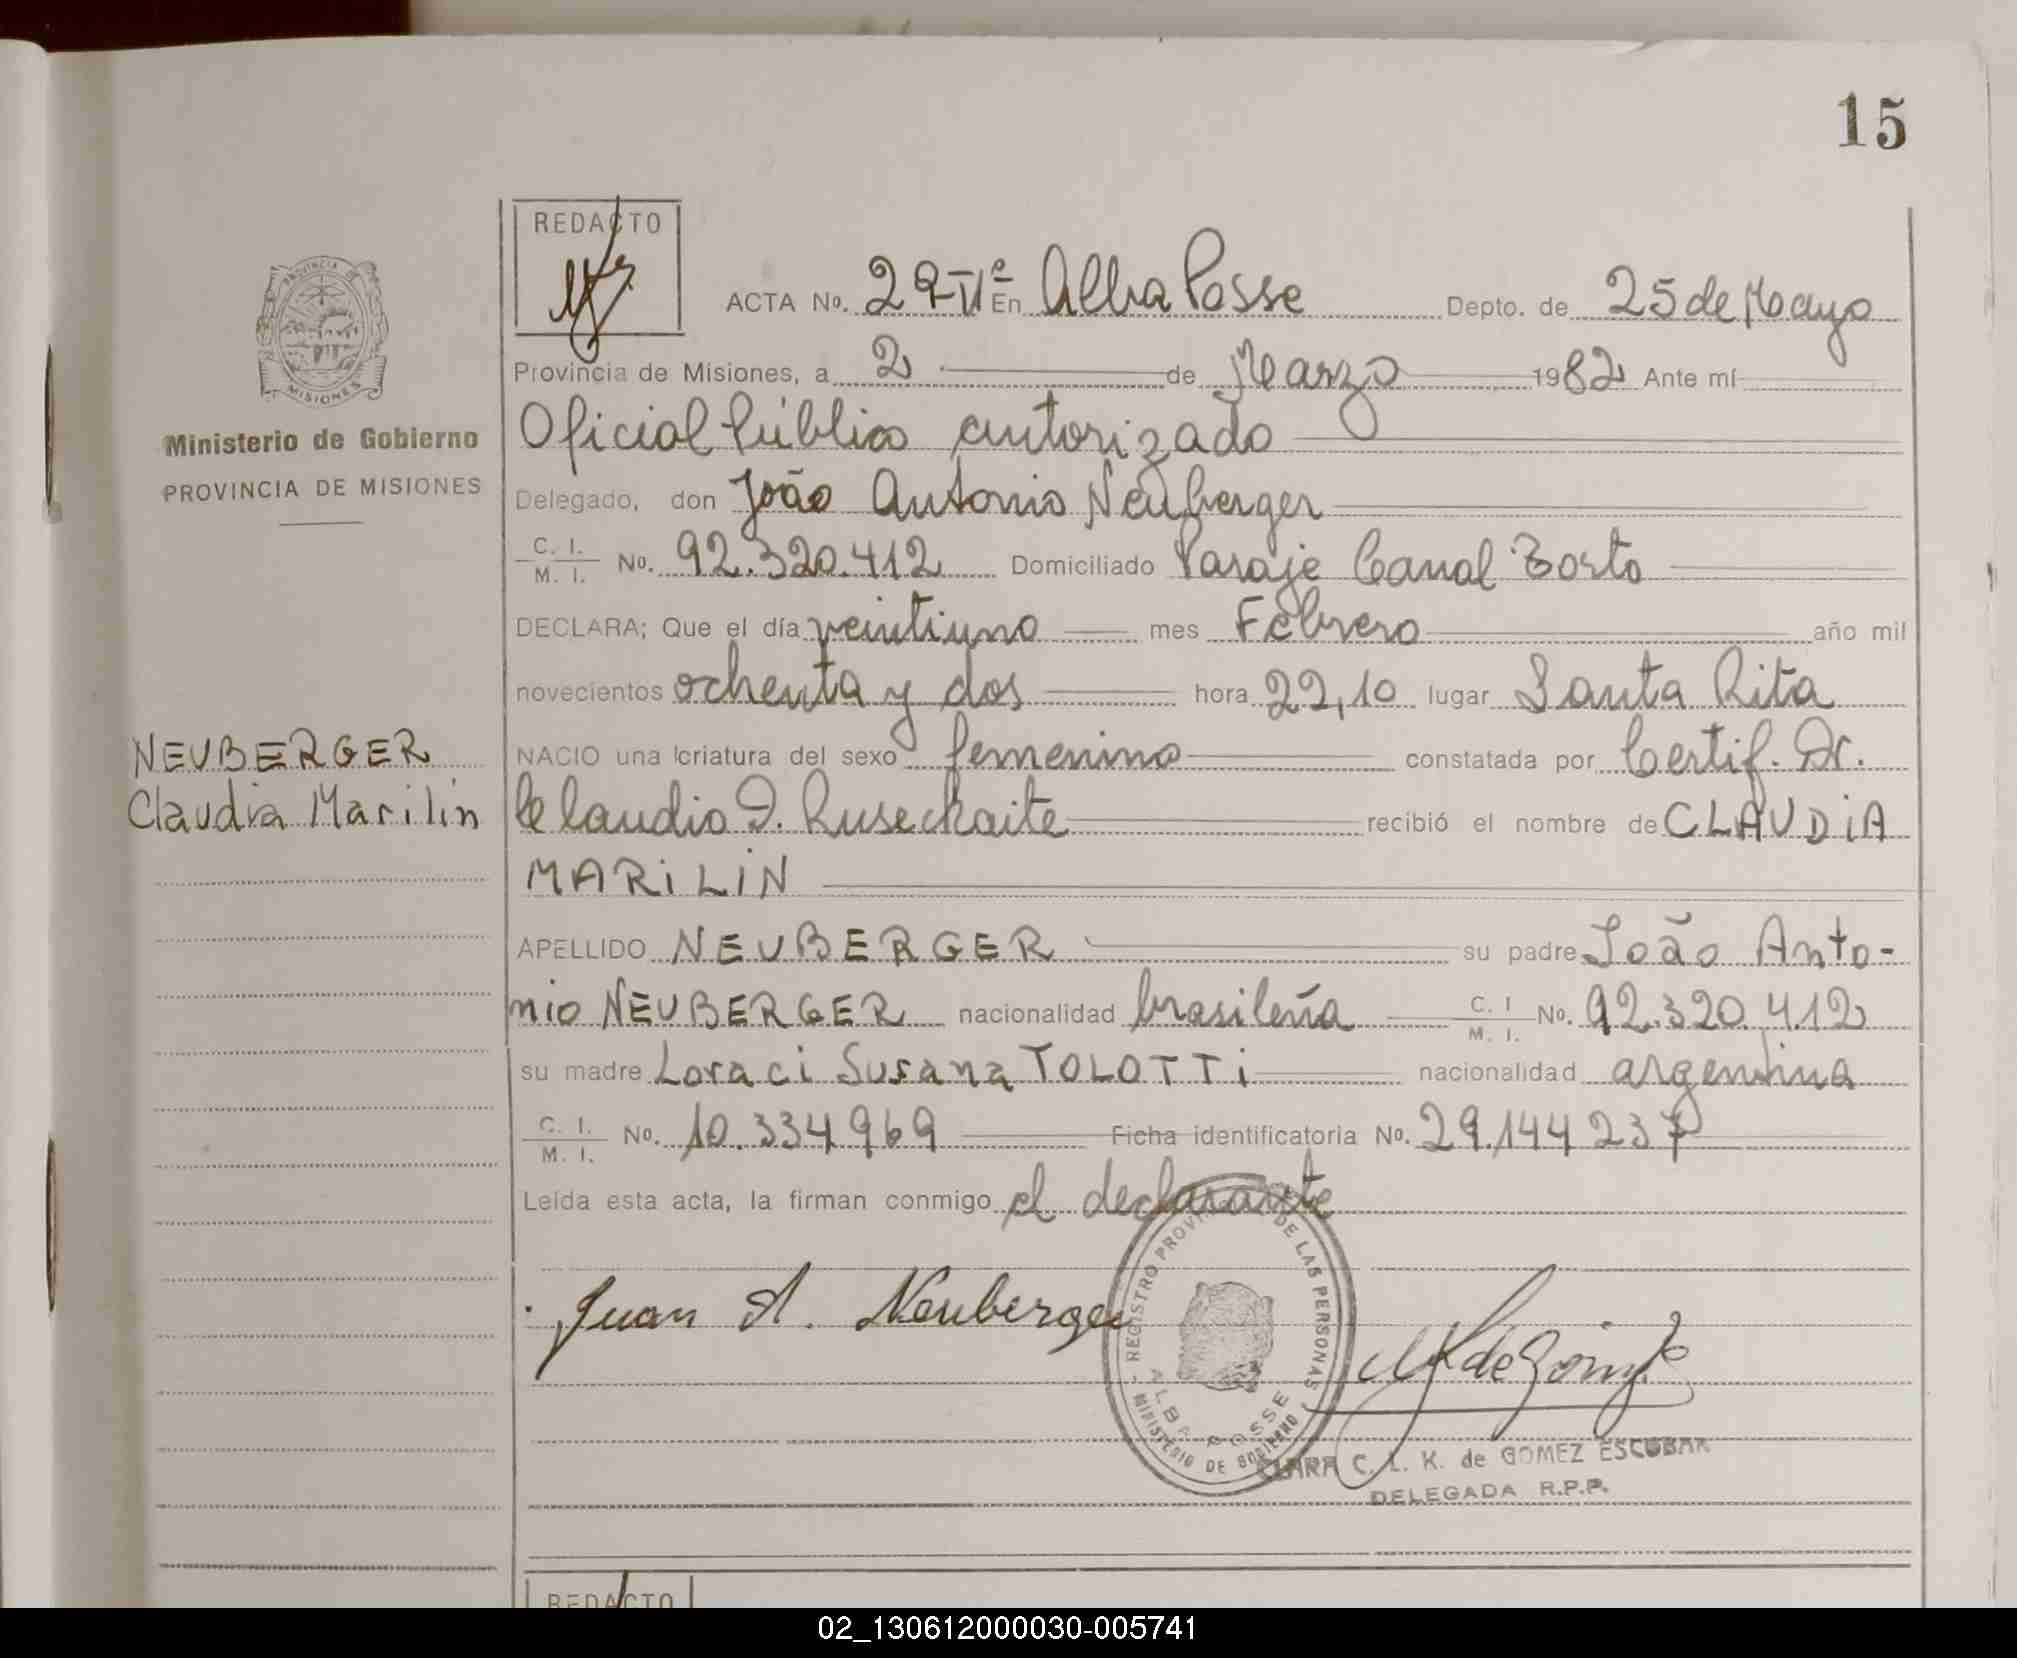 15
REDACTO
PROVINCIA DE
MISIONES
ACTA No. 29-VIº En Alba Posse Depto. de 25 de Mayo
Provincia de Misiones, a 2 de Marzo 1982 Ante mí
Ministerio de Gobierno
PROVINCIA DE MISIONES
Oficial Público autorizado
Delegado, don João Antonio Neuberger
C. I. M. I. No. 92.320.412 Domiciliado Paraje Canal Torto
DECLARA; Que el día veintiuno mes Febrero año mil
novecientos ochenta y dos hora 22,10 lugar Santa Rita
NEUBERGER
Claudia Marilin
NACIO una criatura del sexo femenino constatada por Certif. Dr.
Claudio I. Rusechaite recibió el nombre de CLAUDIA
MARILIN
APELLIDO NEUBERGER su padre João Anto-
nio NEUBERGER nacionalidad brasileña C. I M. I. No. 92.320.412
su madre Loraci Susana TOLOTTi nacionalidad argentina
C. I. M. I. No. 10.334969 Ficha identificatoria No. 29.144 237
Leída esta acta, la firman conmigo el declarante
Juan A. Neuberger
- REGISTRO PROVINCIAL DE LAS PERSONAS
ALBA POSSE
MINISTERIO DE GOBIERNO
CLARA C. L. K. de GOMEZ ESCUBAR
DELEGADA R.P.P.
REDACTO
02_130612000030-005741